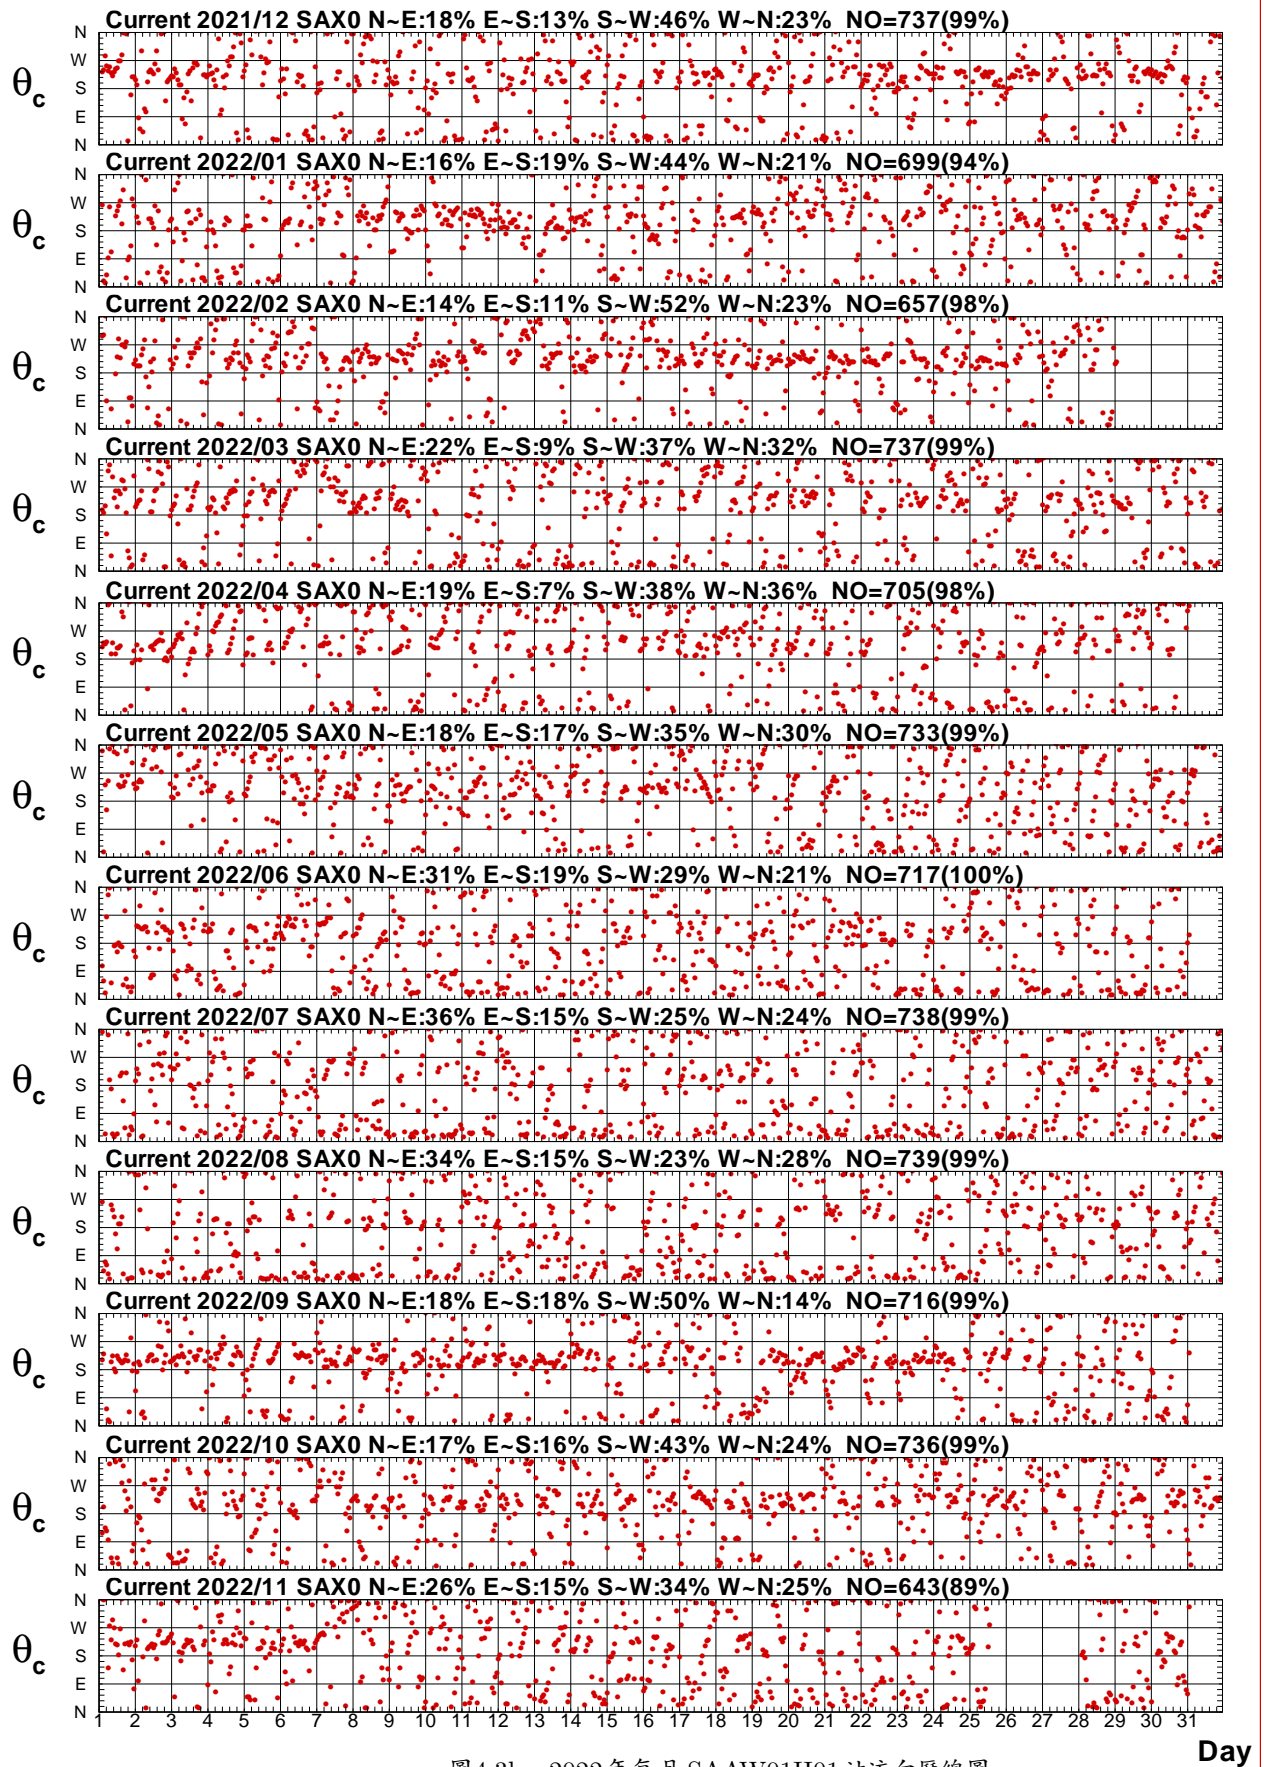 Current 2021/12 SAX0 N~E:18% E~S:13% S~W:46% W~N:23% NO=737(99%)
N
W
S
E
N
θc
Current 2022/01 SAX0 N~E:16% E~S:19% S~W:44% W~N:21% NO=699(94%)
N
W
S
E
N
θc
Current 2022/02 SAX0 N~E:14% E~S:11% S~W:52% W~N:23% NO=657(98%)
N
W
S
E
N
θc
Current 2022/03 SAX0 N~E:22% E~S:9% S~W:37% W~N:32% NO=737(99%)
N
W
S
E
N
θc
Current 2022/04 SAX0 N~E:19% E~S:7% S~W:38% W~N:36% NO=705(98%)
N
W
S
E
N
θc
Current 2022/05 SAX0 N~E:18% E~S:17% S~W:35% W~N:30% NO=733(99%)
N
W
S
E
N
θc
Current 2022/06 SAX0 N~E:31% E~S:19% S~W:29% W~N:21% NO=717(100%)
N
W
S
E
N
θc
Current 2022/07 SAX0 N~E:36% E~S:15% S~W:25% W~N:24% NO=738(99%)
N
W
S
E
N
θc
Current 2022/08 SAX0 N~E:34% E~S:15% S~W:23% W~N:28% NO=739(99%)
N
W
S
E
N
θc
Current 2022/09 SAX0 N~E:18% E~S:18% S~W:50% W~N:14% NO=716(99%)
N
W
S
E
N
θc
Current 2022/10 SAX0 N~E:17% E~S:16% S~W:43% W~N:24% NO=736(99%)
N
W
S
E
N
θc
Current 2022/11 SAX0 N~E:26% E~S:15% S~W:34% W~N:25% NO=643(89%)
N
W
S
E
N
θc
1 2 3 4 5 6 7 8 9 10 11 12 13 14 15 16 17 18 19 20 21 22 23 24 25 26 27 28 29 30 31
Day
2022年每月 SAAW01H01 站流向歷線圖